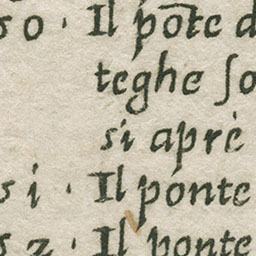 so · Il põte d
teghe ſo
si aprè
si · Il ponte
sz · Il ponte